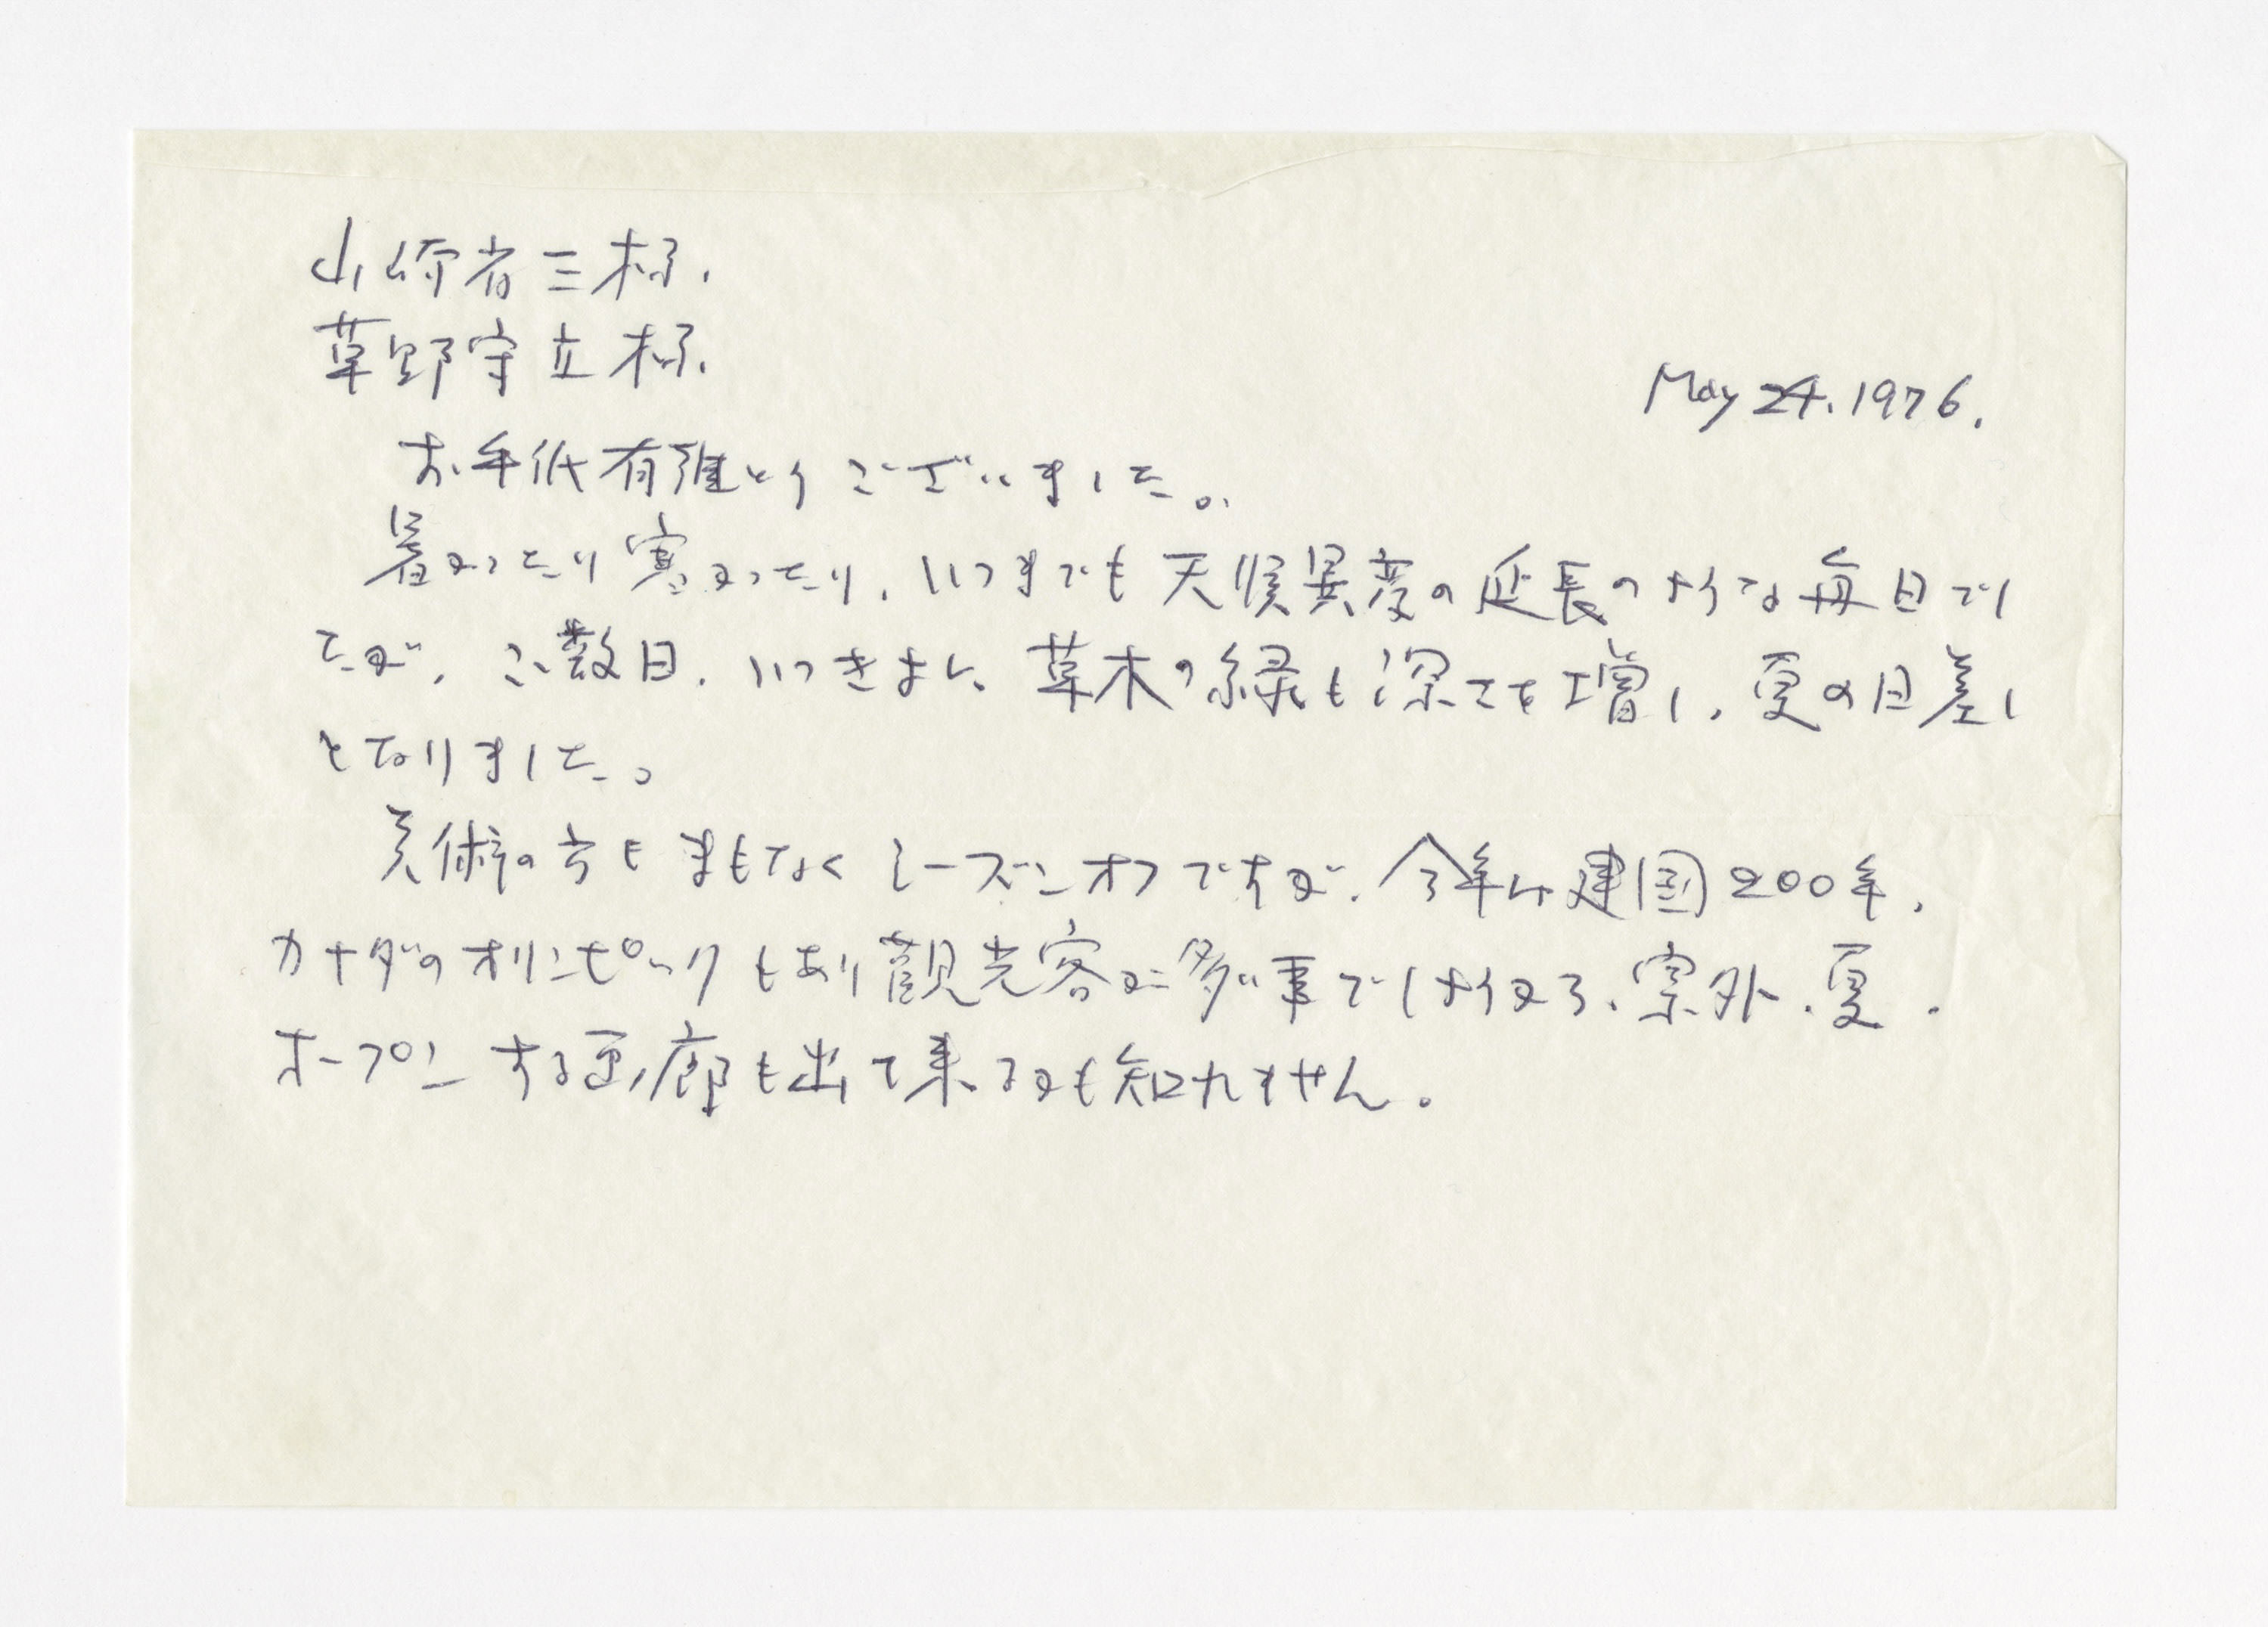 山崎省三様.
草野守立様.
May 24. 1976.
お手紙有難とうございました。
暑かったり寒かったり、いつまでも天候異変の延長のような毎日でし
たが、ここ数日、いっきょに草木の緑も深さを増し、夏の日差し
となりました。
美術の方もまもなくシーズンオフですが、今年は建国200年、
カナダのオリンピックもあり観光客が多い事でしょうから、案外、夏、
オープンする画廊も出て来るかも知れません。